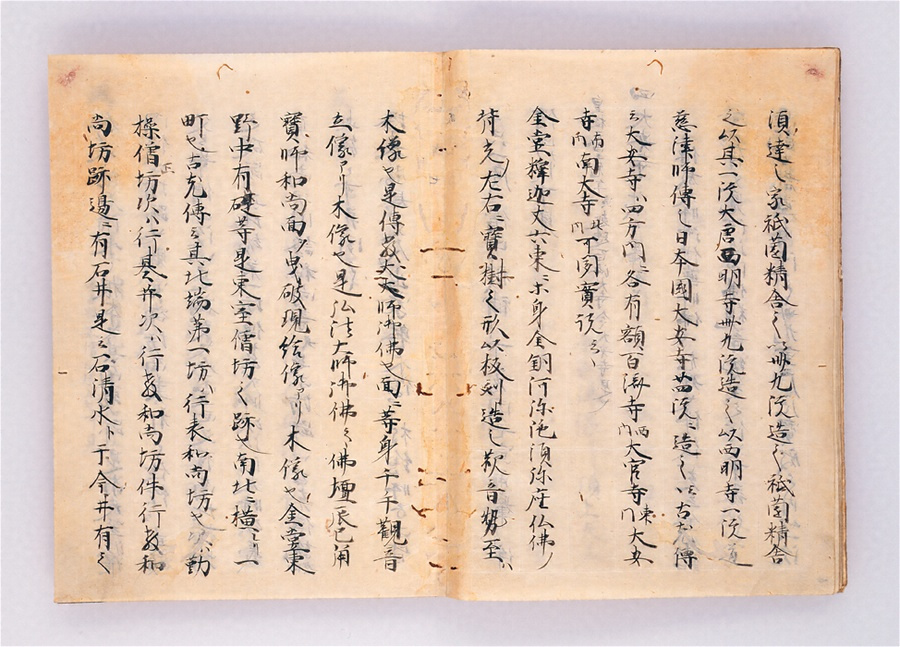 須達之家祇薗精舎之以卌九院造之祇薗精舎
之以其一院大唐西明寺卅九院造之以西明寺一院
慈律師傳之日本國大安寺廿四院ニ造之以古老傳
云大安寺ハ四方門ニ各有額百済寺西門大官寺東門大安
寺南門南大寺北門不同實説云々
金堂釋迦丈六東ニ等身金銅阿弥陀須弥座仏佛ノ
持克左右ニ寶樹之形以板刻造之歡音勢至
木像也是傳教大師御佛也面ニ等身千手觀音
立像アリ木像也是弘法大師御佛之佛壇辰巳角
寶師和尚面ノ曳破現絵像アリ木像也金堂東
野中有礎等是東室僧坊之跡南北ニ横 一
町也古老傳云其北端第一坊ハ行表和尚坊也次ハ勤
操僧正坊次ハ行基井次ハ行教和尚坊件行教和
尚坊跡邊ニ有石井是云石清水下于今井有之